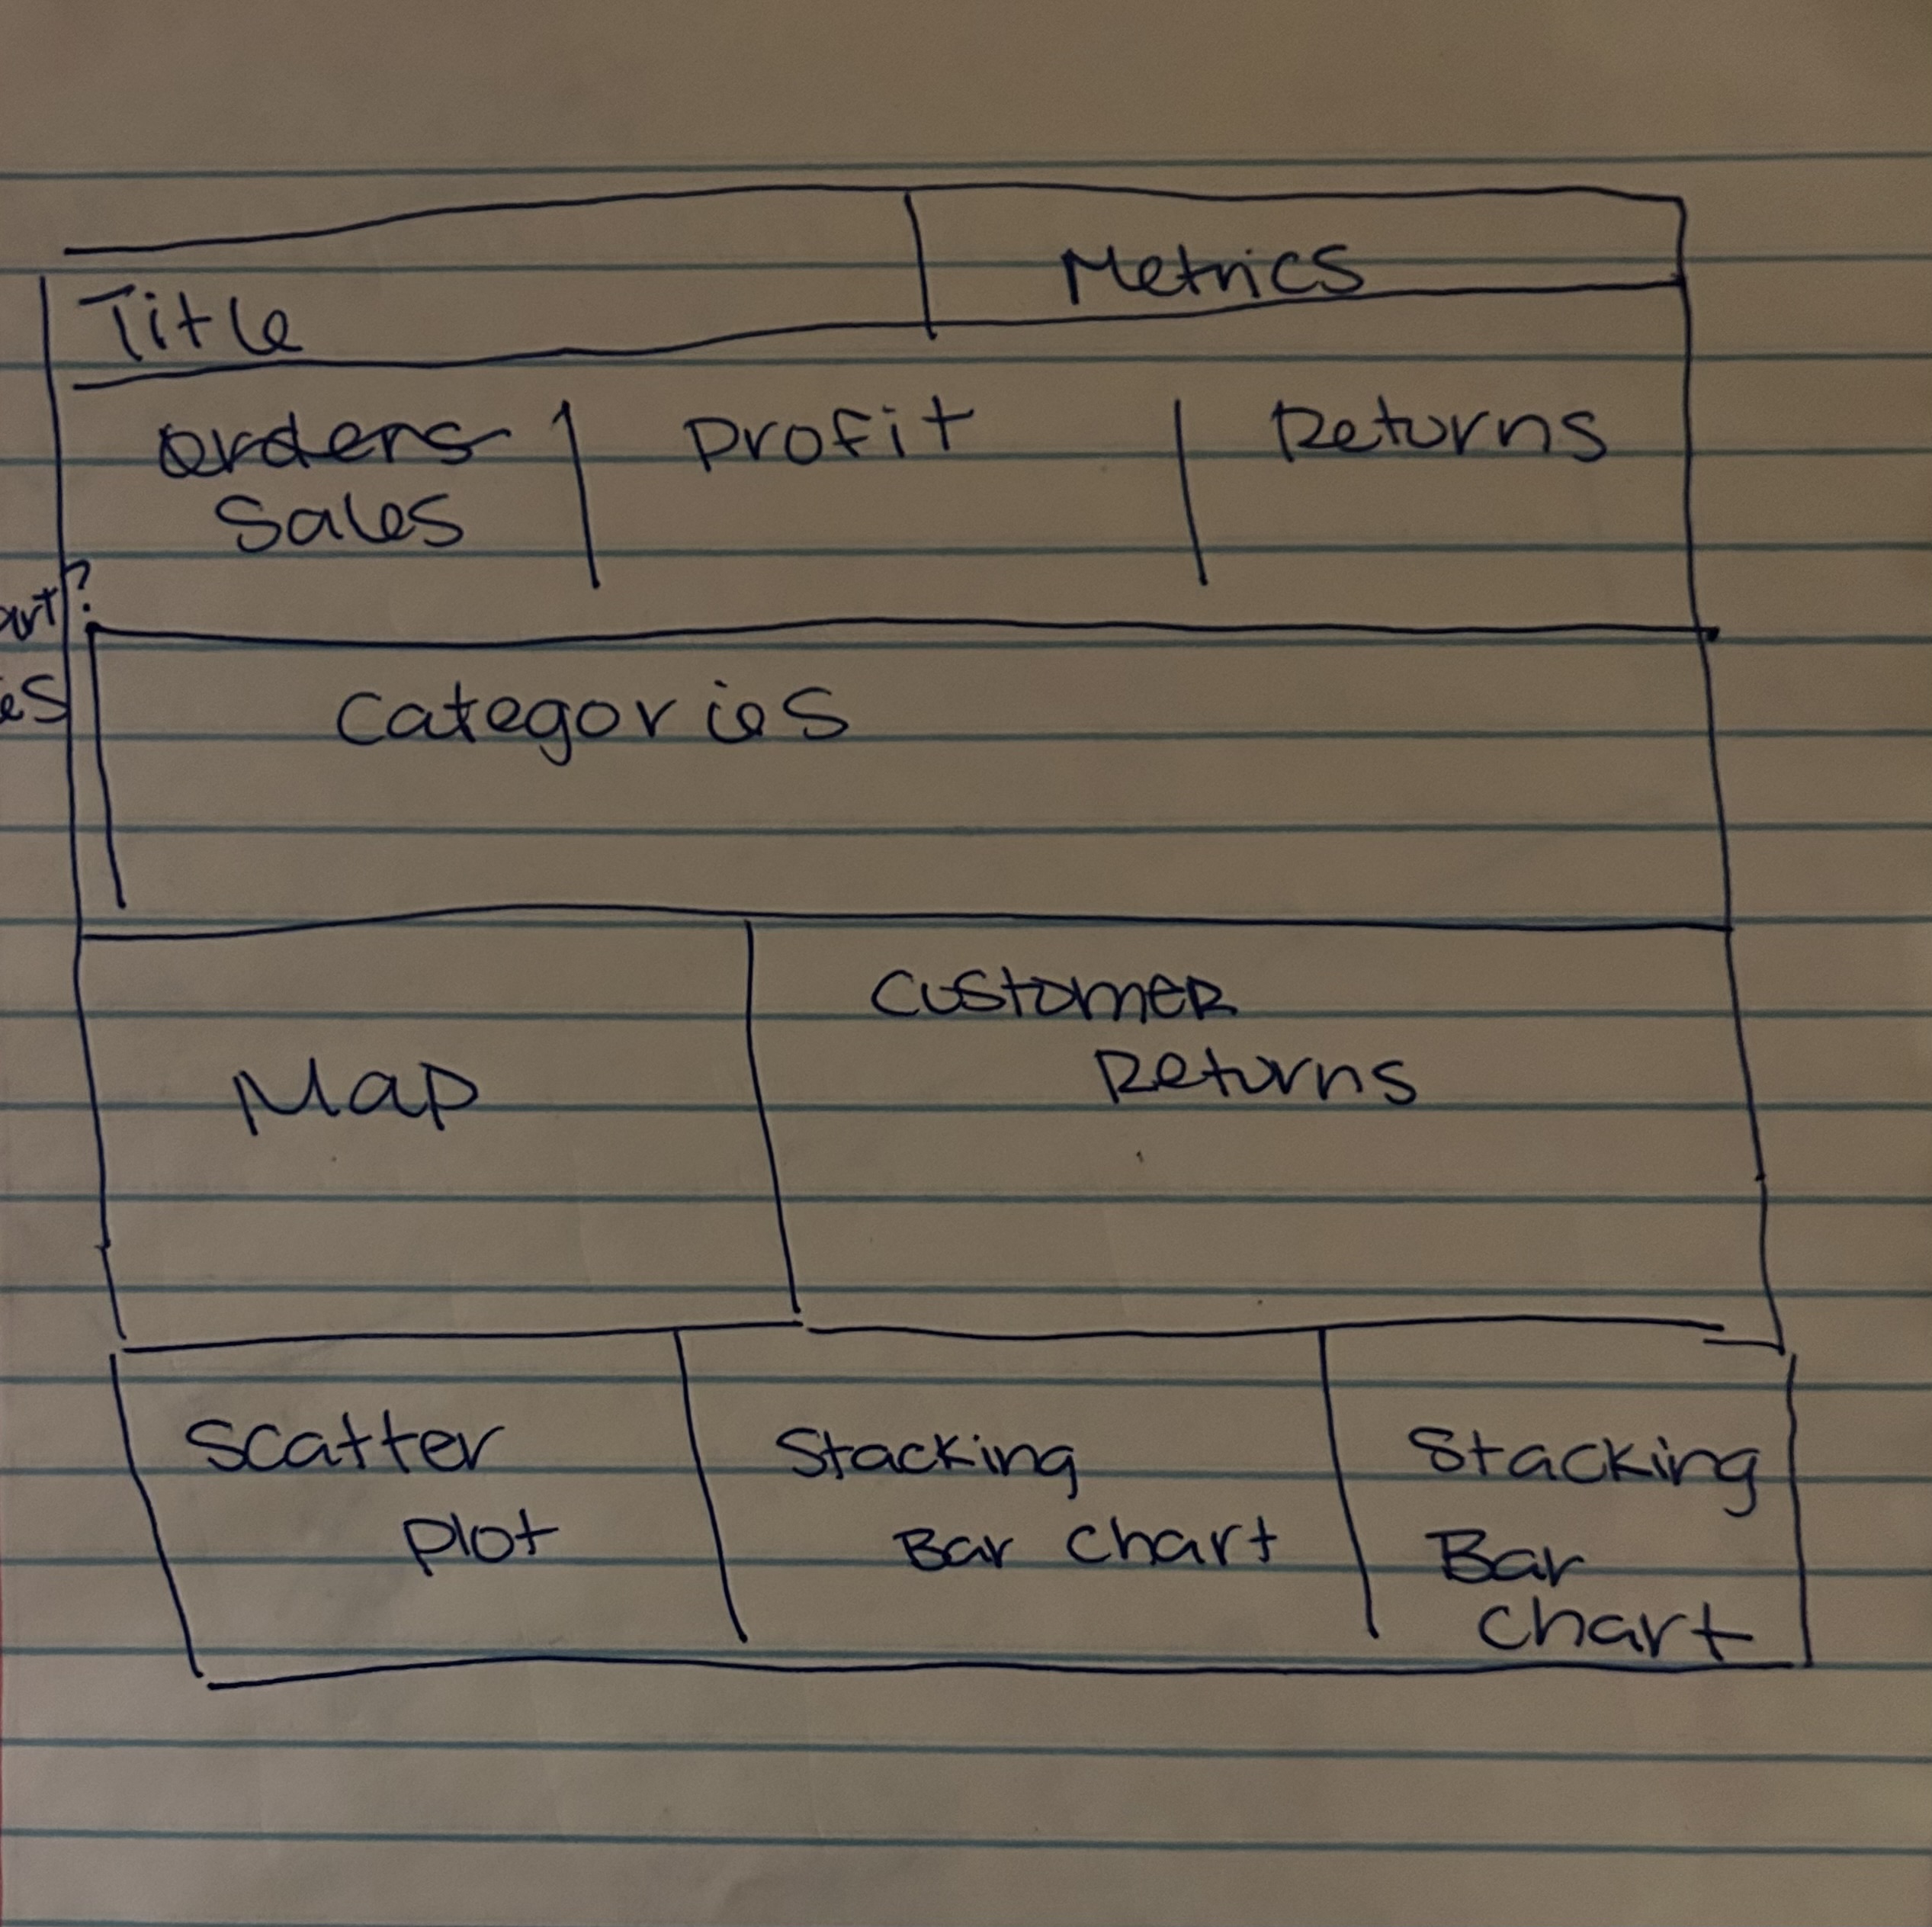 Title
Metrics
Orders
Sales
Profit
Returns
Categories
Map
Customer
Returns
Scatter
Plot
Stacking
Bar Chart
Stacking
Bar
Chart